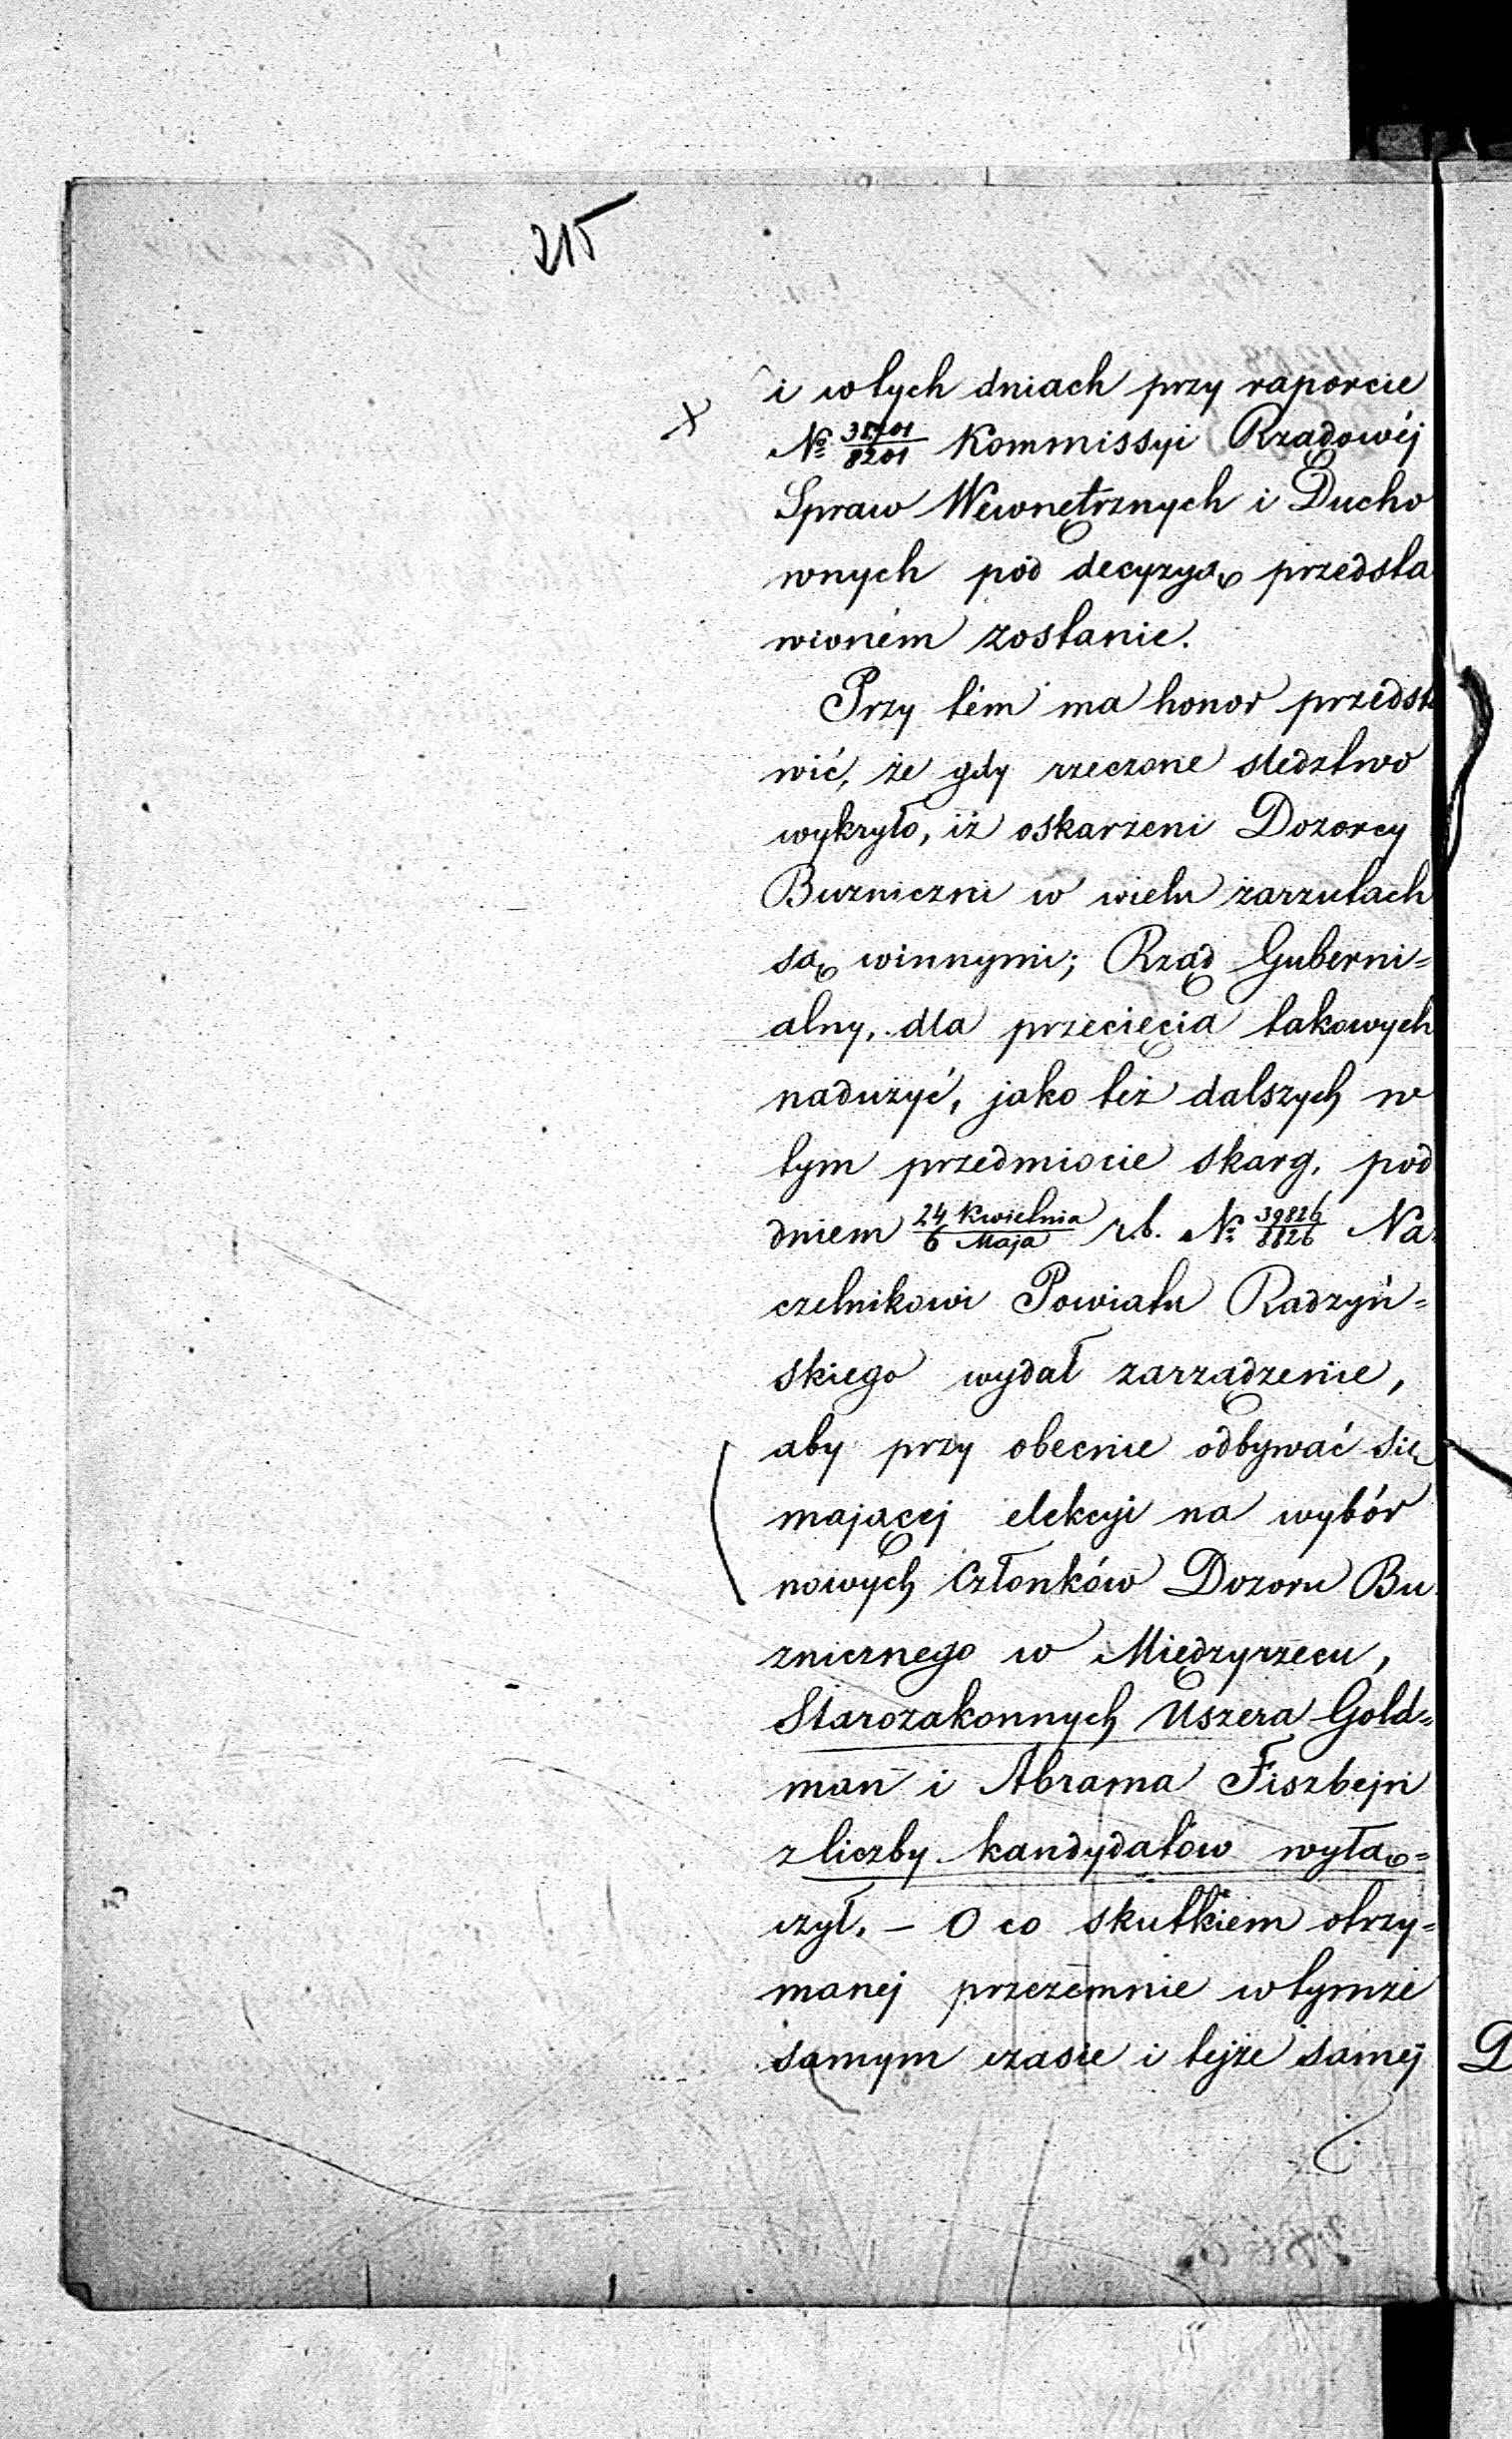 215
i w tych dniach przy raporcie
№ 8201 Kommissyi Rządowéj
Spraw Wewnętrznych i Ducho
wnych pod decyzyą przedsta
wioném zostanie.
Przy tém ma honor przedsta
wić, że gdy rzeczone śledztwo
wykryło, iż oskarżeni Dozorcy
Bużniczni w wielu zarzutach
są winnymi; Rząd Guberni=
alny, dla przecięcia takowych
nadużyć, jako też dalszych w
tym przedmiocie skarg, pod
dniem 24 Kwietnia / 6 Maja r.b. № 39826/8826 Na
czelnikowi Powiatu Radzyń=
skiego wydał zarządzenie,
aby przy obecnie odbywać się
mającej elekcyi na wybór
nowych Członków Dozoru Bu
żnicznego w Międzyrzecu,
Starozakonnych Uszera Gold=
man i Abrama Fiszbejn
z liczby kandydatów wyłą=
czył. — O co skutkiem otrzy=
manej przezemnie w tymże
samym czasie i tejże samej